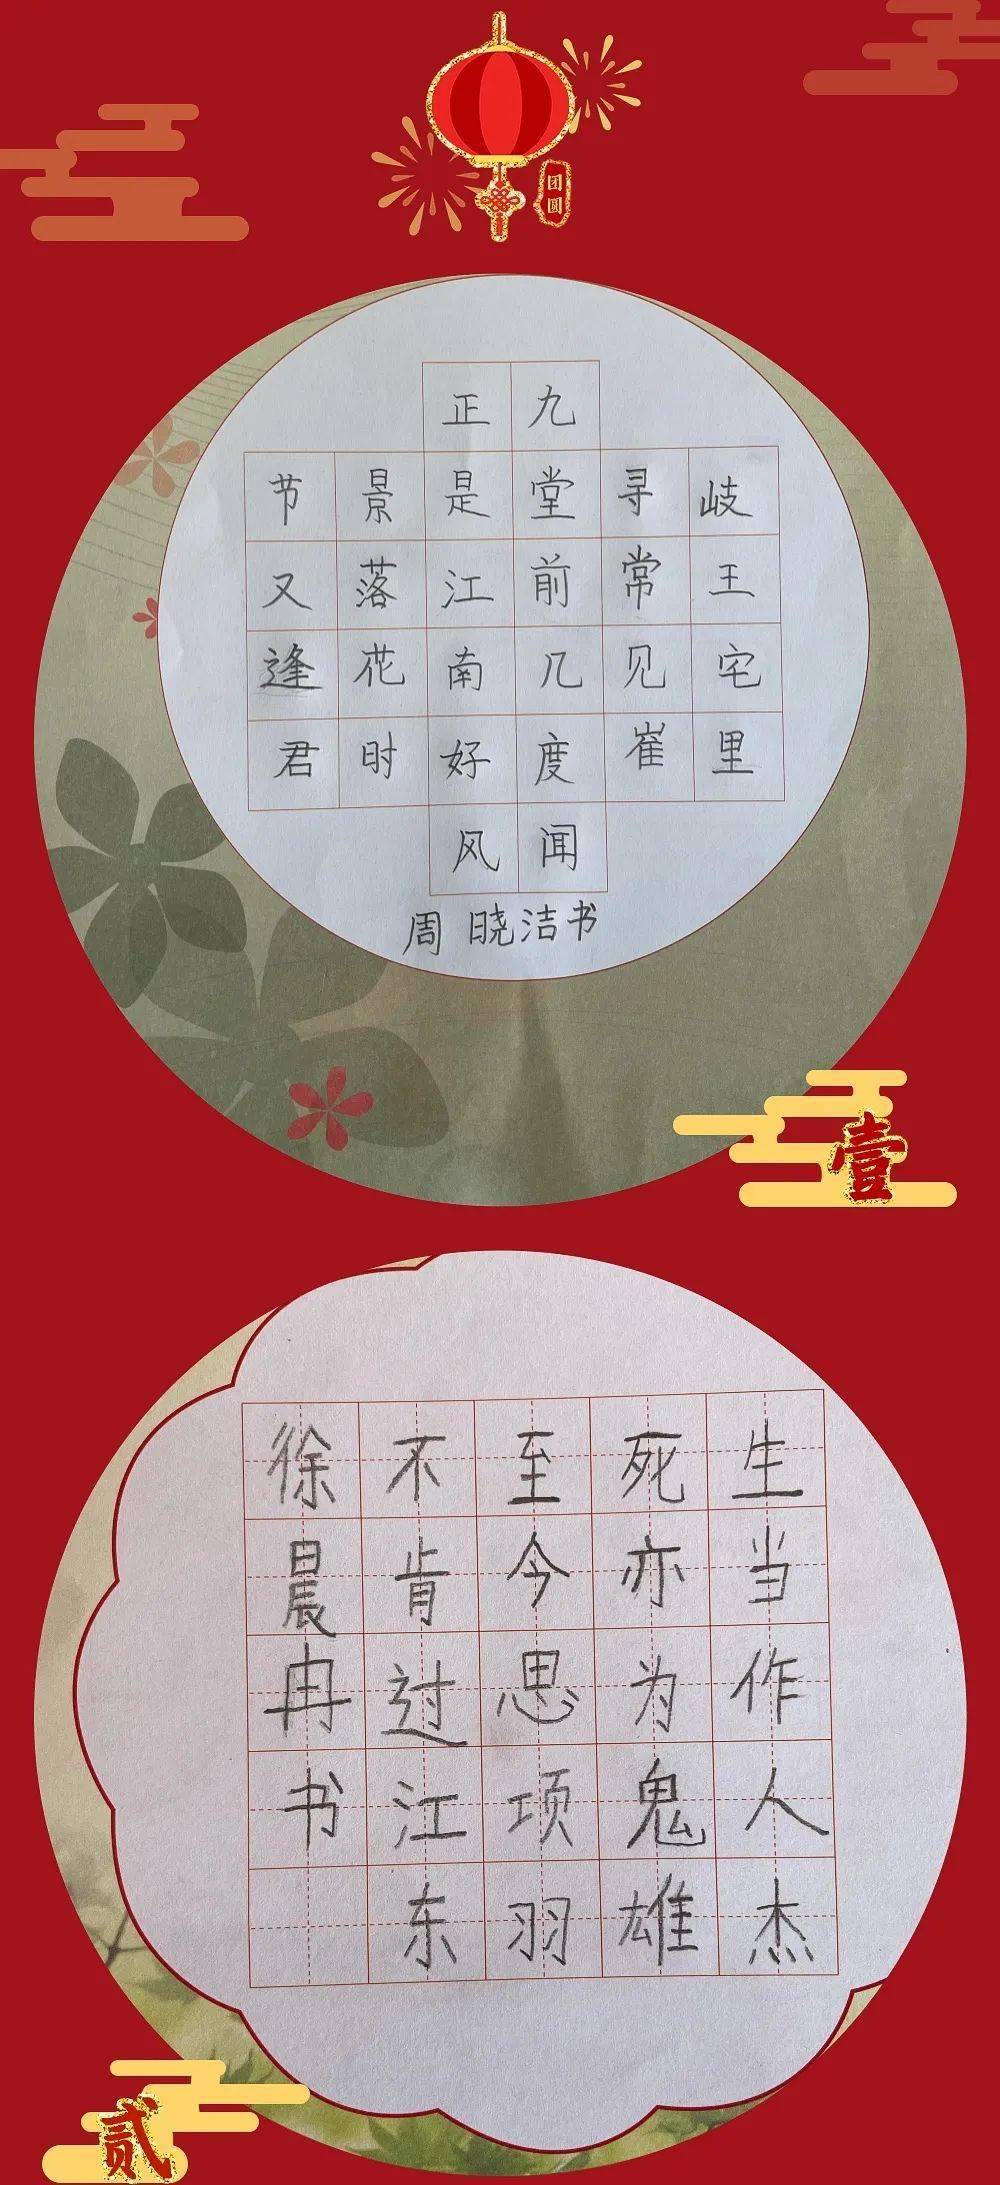 团圆
岐王宅里
寻常见崔
九堂前几度闻
正是江南好风
景落花时
节又逢君
周晓洁书
壹
生当作人杰
死亦为鬼雄
至今思项羽
不肯过江东
徐晨冉书
贰